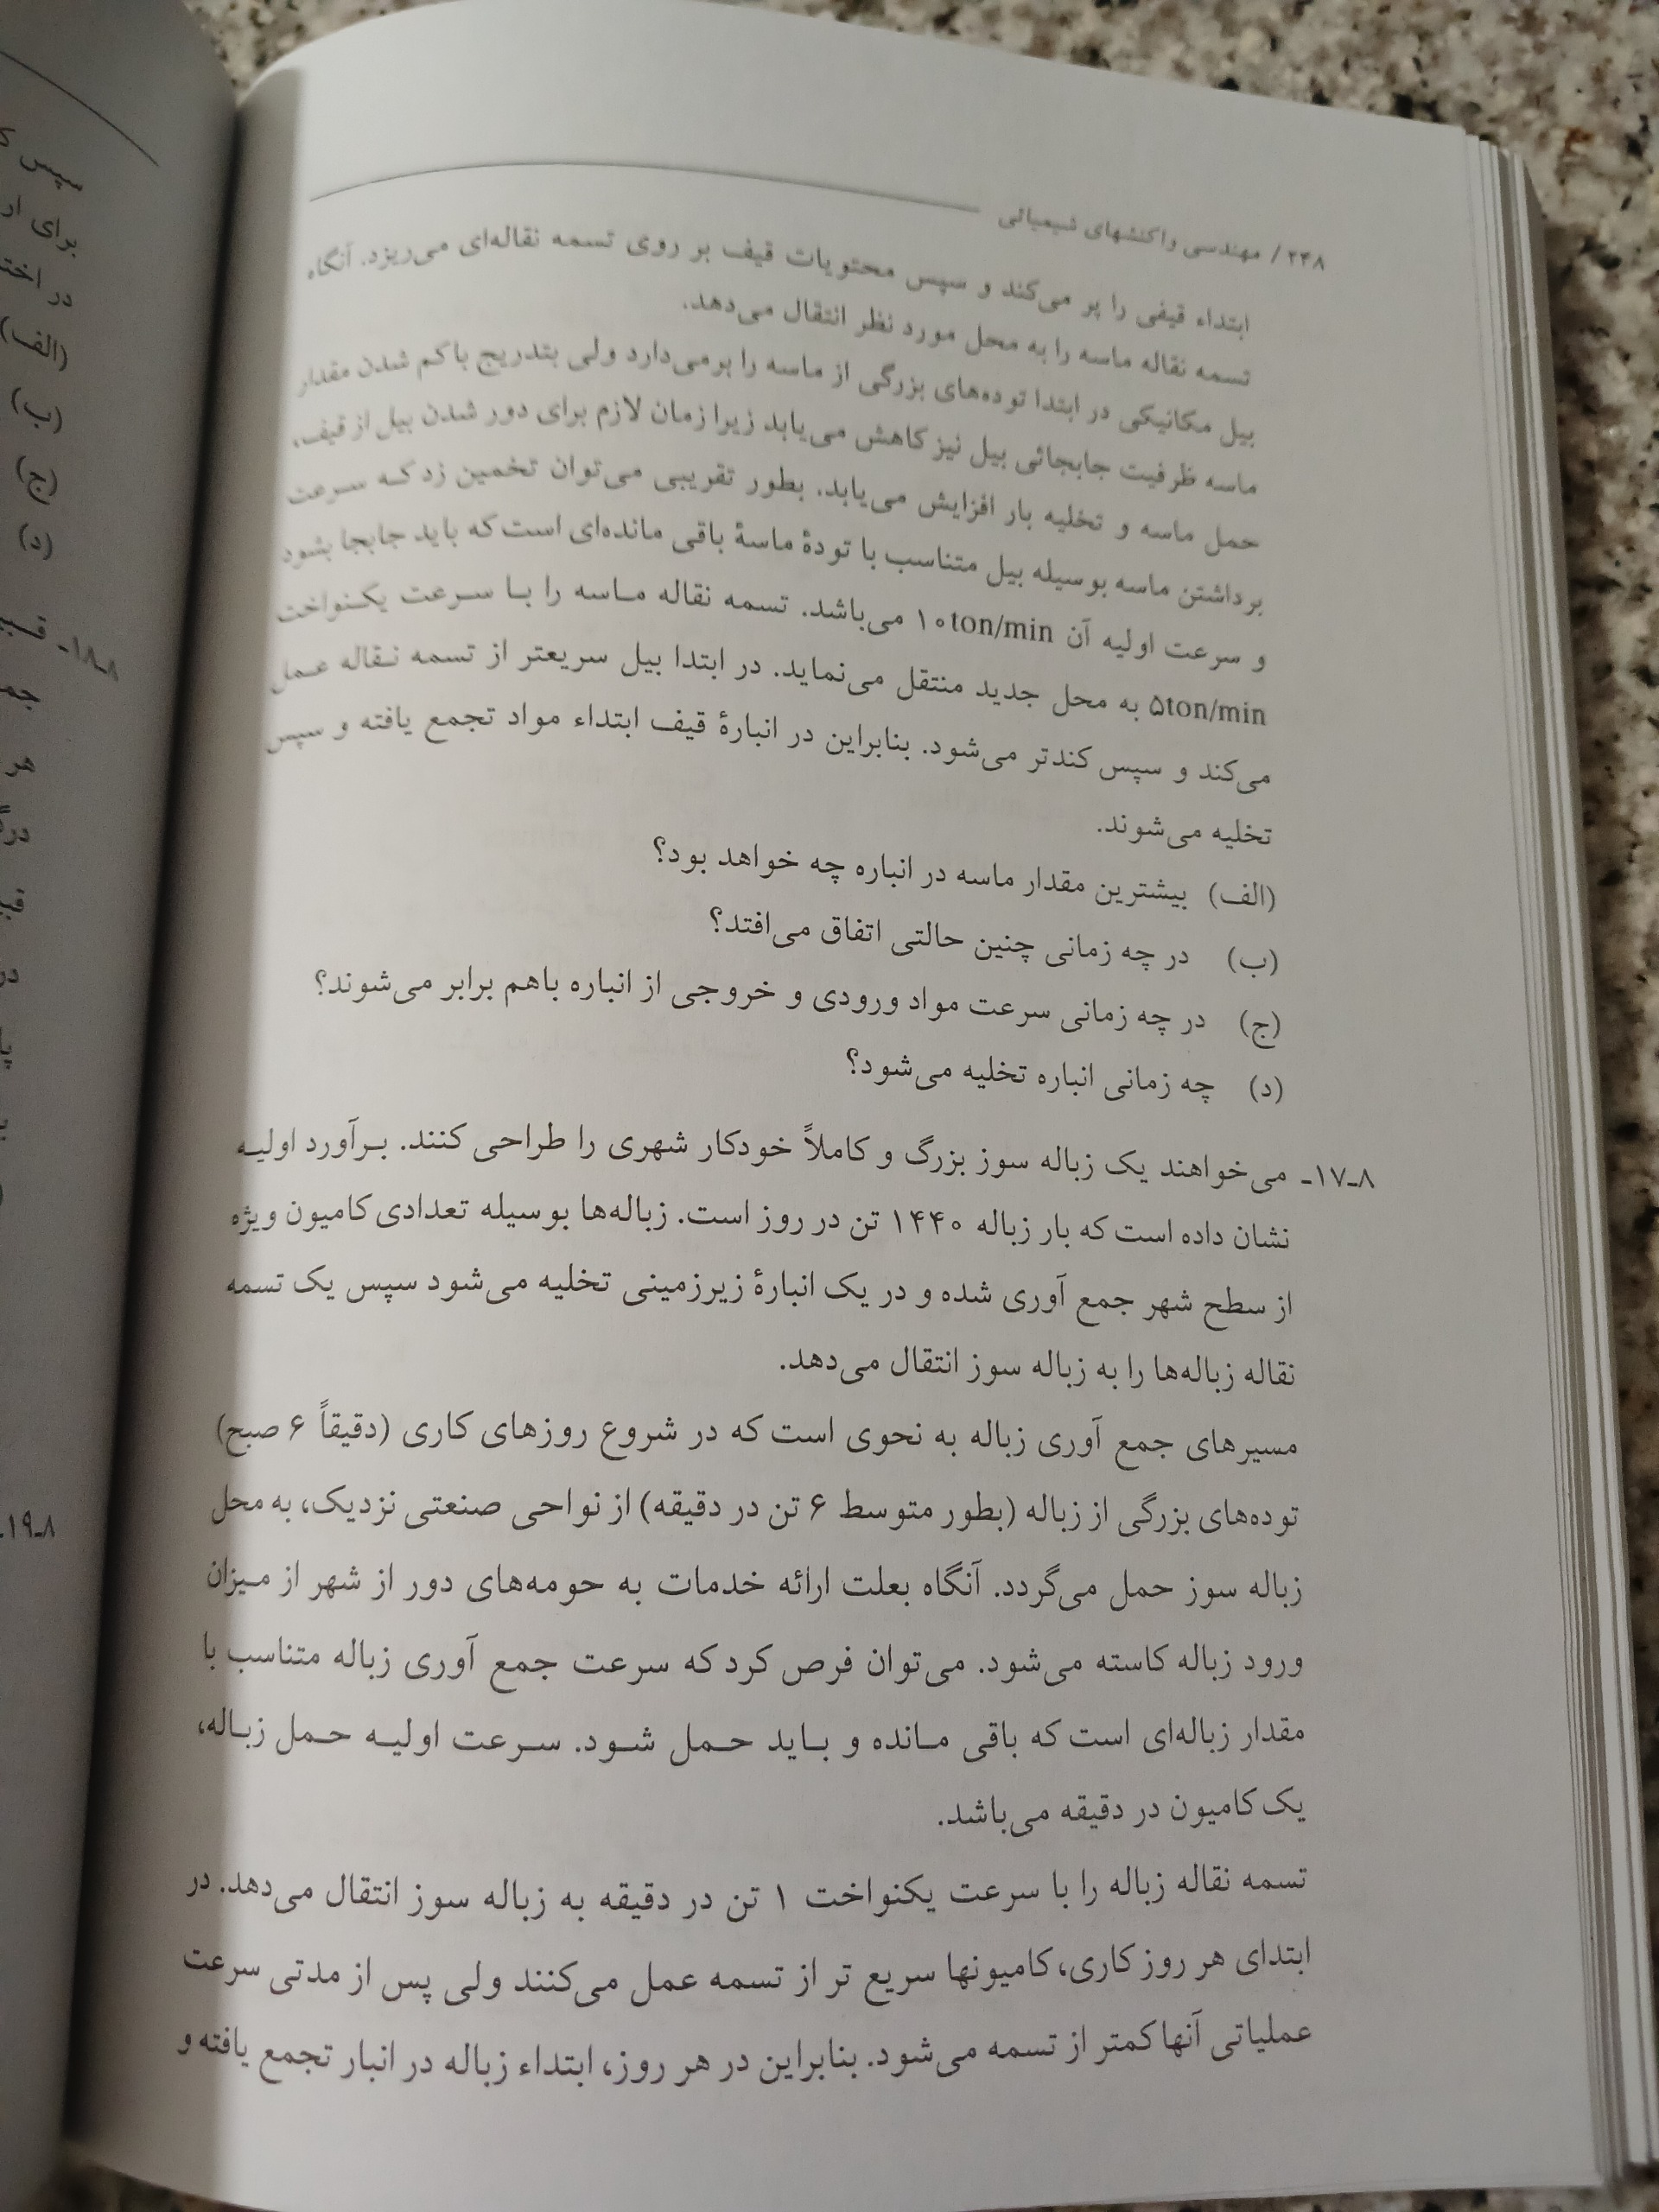 ۲۴۸ / مهندسی واکنشهای شیمیائی
ابتداء قیفی را پر می‌کند و سپس محتویات قیف بر روی تسمه نقاله‌ای می‌ریزد. آنگاه
تسمه نقاله ماسه را به محل مورد نظر انتقال می‌دهد.
بیل مکانیکی در ابتدا توده‌های بزرگی از ماسه را برمی‌دارد ولی بتدریج با کم شدن مقدار
ماسه ظرفیت جابجائی بیل نیز کاهش می‌یابد زیرا زمان لازم برای دور شدن بیل از قیف،
حمل ماسه و تخلیه بار افزایش می‌یابد. بطور تقریبی می‌توان تخمین زد که سرعت
برداشتن ماسه بوسیله بیل متناسب با تودهٔ ماسهٔ باقی مانده‌ای است که باید جابجا بشود
و سرعت اولیه آن ۱۰ton/min می‌باشد. تسمه نقاله ماسه را با سرعت یکنواخت
۵ton/min به محل جدید منتقل می‌نماید. در ابتدا بیل سریعتر از تسمه نقاله عمل
می‌کند و سپس کندتر می‌شود. بنابراین در انبارهٔ قیف ابتداء مواد تجمع یافته و سپس
تخلیه می‌شوند.
(الف) بیشترین مقدار ماسه در انباره چه خواهد بود؟
(ب) در چه زمانی چنین حالتی اتفاق می‌افتد؟
(ج) در چه زمانی سرعت مواد ورودی و خروجی از انباره باهم برابر می‌شوند؟
(د) چه زمانی انباره تخلیه می‌شود؟
۸ـ۱۷ـ می‌خواهند یک زباله سوز بزرگ و کاملاً خودکار شهری را طراحی کنند. برآورد اولیه
نشان داده است که بار زباله ۱۴۴۰ تن در روز است. زباله‌ها بوسیله تعدادی کامیون ویژه
از سطح شهر جمع آوری شده و در یک انبارهٔ زیرزمینی تخلیه می‌شود سپس یک تسمه
نقاله زباله‌ها را به زباله سوز انتقال می‌دهد.
مسیرهای جمع آوری زباله به نحوی است که در شروع روزهای کاری (دقیقاً ۶ صبح)
توده‌های بزرگی از زباله (بطور متوسط ۶ تن در دقیقه) از نواحی صنعتی نزدیک، به محل
زباله سوز حمل می‌گردد. آنگاه بعلت ارائه خدمات به حومه‌های دور از شهر از میزان
ورود زباله کاسته می‌شود. می‌توان فرص کرد که سرعت جمع آوری زباله متناسب با
مقدار زباله‌ای است که باقی مانده و باید حمل شود. سرعت اولیه حمل زباله،
یک کامیون در دقیقه می‌باشد.
تسمه نقاله زباله را با سرعت یکنواخت ۱ تن در دقیقه به زباله سوز انتقال می‌دهد. در
ابتدای هر روز کاری، کامیونها سریع تر از تسمه عمل می‌کنند ولی پس از مدتی سرعت
عملیاتی آنها کمتر از تسمه می‌شود. بنابراین در هر روز، ابتداء زباله در انبار تجمع یافته و
سپس
برای
(الف)
(ب)
(ج)
(د)
۸ـ۱۸ـ
هر
۸ـ۱۹ـ